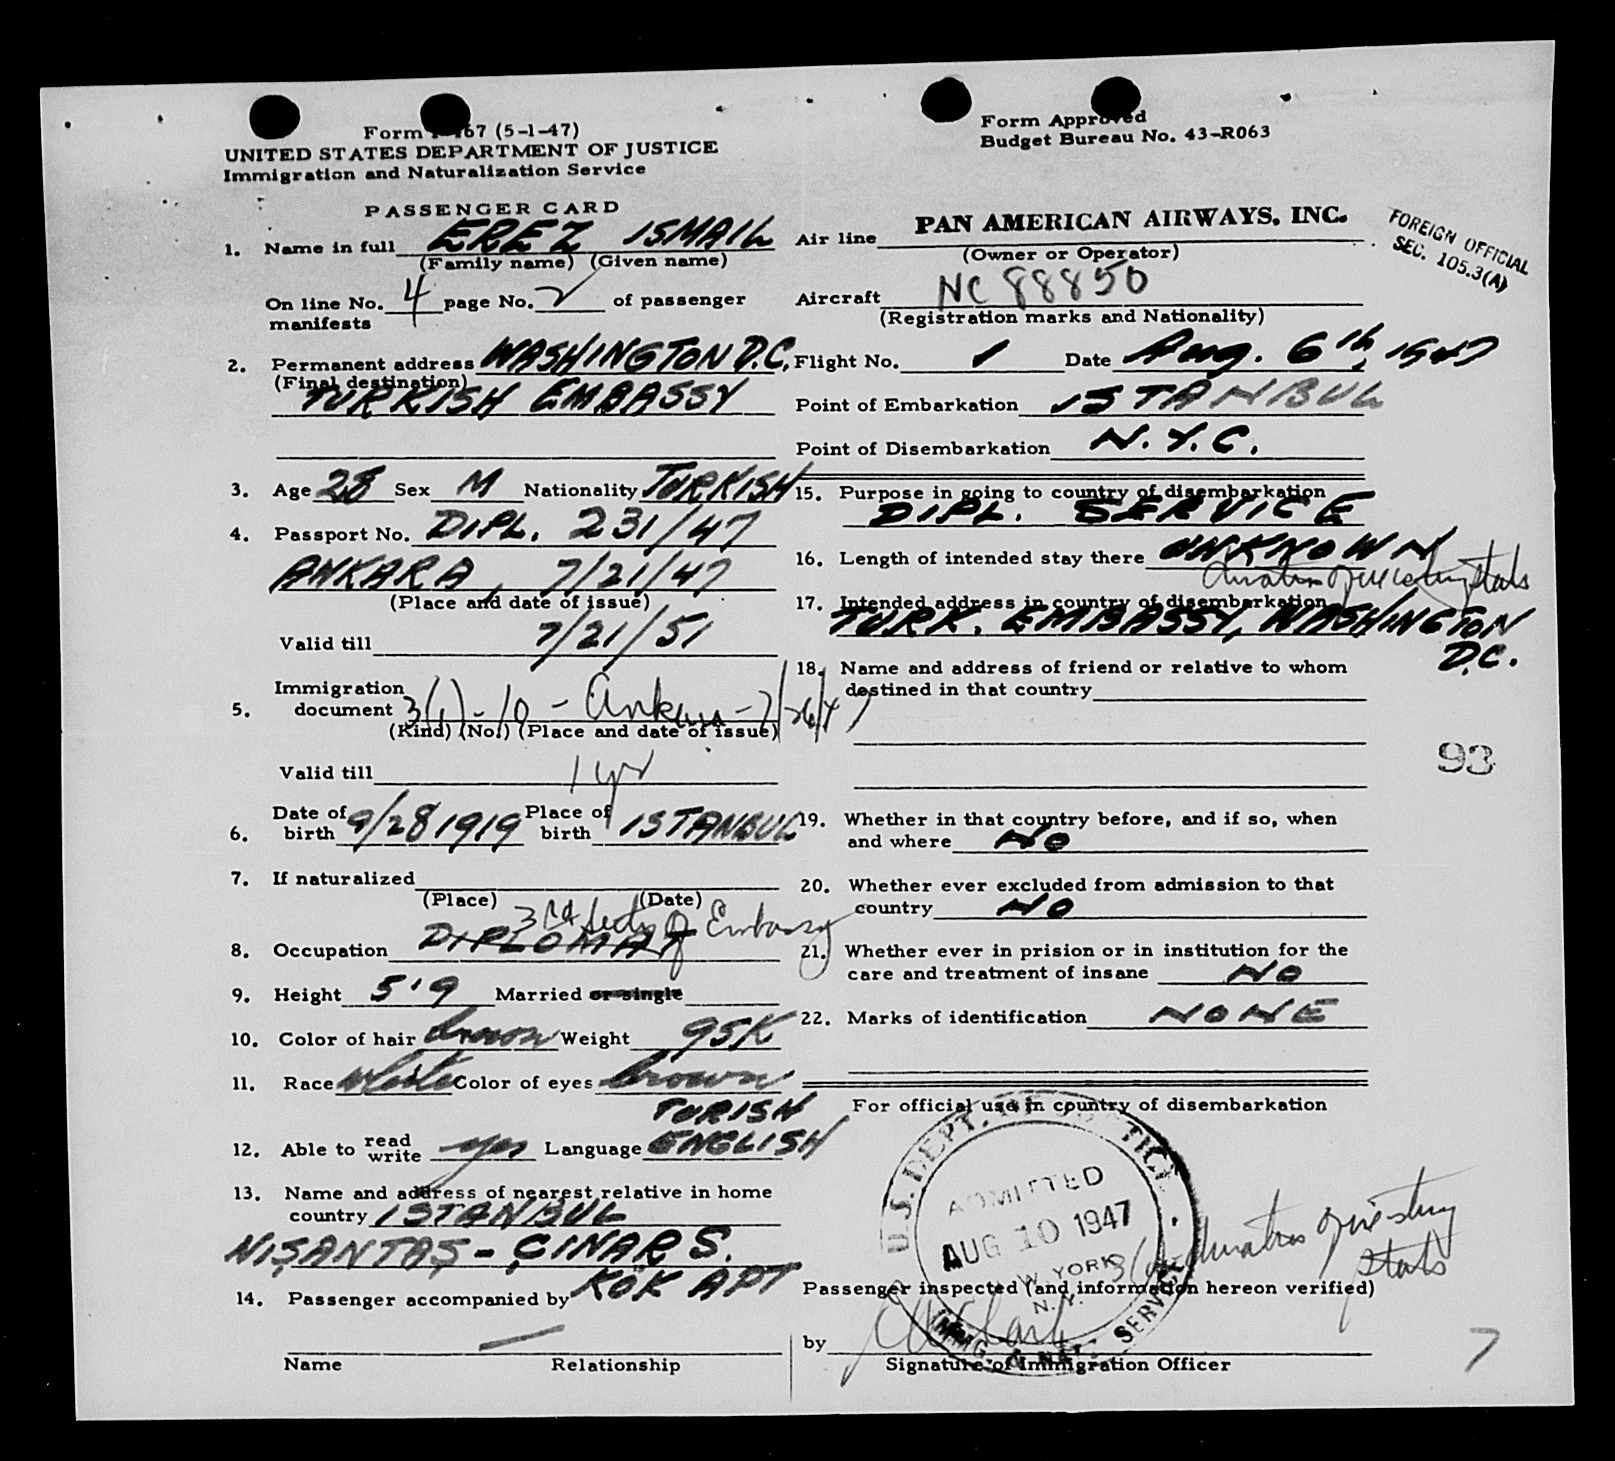 Form I-467 (5-1-47)
UNITED STATES DEPARTMENT OF JUSTICE
Immigration and Naturalization Service
PASSENGER CARD
1. Name in full EREZ ISMAIL
(Family name) (Given name)
On line No. 4 page No. 2 of passenger
manifests
2. Permanent address WASHINGTON D.C.
(Final destination)
TURKISH EMBASSY
3. Age 28 Sex M Nationality TURKISH
4. Passport No. DIPL. 231/47
ANKARA, 7/21/47
(Place and date of issue)
Valid till 7/21/51
Immigration
5. document 3(1)-10 - Ankara - 7/26/47
(Kind) (No.) (Place and date of issue)
Valid till 1 yr
6. Date of birth 9/28 1919 Place of birth ISTANBUL
7. If naturalized
(Place) (Date)
3rd Secty of Embassy
8. Occupation DIPLOMAT
9. Height 5'9 Married or single
10. Color of hair brown Weight 95K
11. Race White Color of eyes brown
TURISH
12. Able to read write yes Language ENGLISH
13. Name and address of nearest relative in home
country ISTANBUL
NIŞANTAŞ - ÇINAR S.
KÖK APT
14. Passenger accompanied by
Name Relationship
Form Approved
Budget Bureau No. 43-R063
FOREIGN OFFICIAL
SEC. 105.3(A)
Air line PAN AMERICAN AIRWAYS, INC.
(Owner or Operator)
Aircraft NC 88850
(Registration marks and Nationality)
Flight No. 1 Date Aug. 6th, 1947
Point of Embarkation ISTANBUL
Point of Disembarkation N.Y.C.
15. Purpose in going to country of disembarkation
DIPL. SERVICE
16. Length of intended stay there UNKNOWN
duration of existing stats
17. Intended address in country of disembarkation
TURK. EMBASSY, WASHINGTON
D.C.
18. Name and address of friend or relative to whom
destined in that country
93
19. Whether in that country before, and if so, when
and where NO
20. Whether ever excluded from admission to that
country NO
21. Whether ever in prision or in institution for the
care and treatment of insane NO
22. Marks of identification NONE
For official use in country of disembarkation
U.S. DEPT. OF JUSTICE
ADMITTED
AUG 10 1947
NEW YORK
N.Y.
IMMIG. & NAT. SERVICE
duration of existing
stats
Passenger inspected (and information hereon verified)
by
Signature of Immigration Officer
7